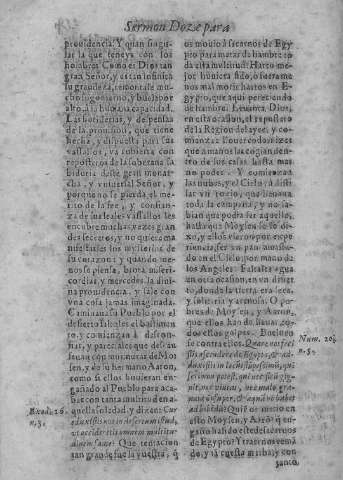 Sermon Doze para
prouidencia. Y quan singu-
lar la que teneys con los
hombres. Como es Dios tan
gran Señor, y es tan infinita
su grandeza, reportale mu-
cho su gouierno, y buscalo
abro. à la humana capacidad.
Las botillerias, y despensas
de la prouision, que tiene
hecha, y dispuesta para sus
vassallos, va cubierta con
reposteros de la soberana sa
biduria deste gran monar-
cha, y vniuersal Señor, y
porque no se pierda el me-
rito de la fee, y confian-
za de sus leales vassallos les
encubre muchas vezes gran
des secretos, y no quiere ma
nifestarles los misterios de
su coraçon: y quando me-
nos se piensa, brota miseri-
cordias, y mercedes la diui-
na prouidencia, y sale con
vna cosa jamas imaginada.
Caminaua su Pueblo por el
desierto faltoles el bastimen
to, y comiençan à descon-
fiar, y parecialesque
sauan con murmuras de Moy-
sen, y de su hermano Aaron,
como si ellos huuieran en-
gañado al Pueblo para aca-
bar con tanta multitud en a-
quella soledad, y dizen: Cur
eduxistis nos in desertum istud,
vt occideretis omnem multitu-
dinem fame? Que tentacion
tan grande fue la vuestra, q̃
Exod. 16.
n. 3.
os mouio à sacarnos de Egy
pto para matar de hambre to
da esta multitud? Harto me-
jor huuiera sido, o fuera me
nos mal morir hartos en E-
gypto, que aqui pereciendo
de hambre. Leuanta Dios,
en esta ocasion, el repostero
de la Region del ayre, y co-
miença à llouer codornizes
que à manos las cogian den-
tro de sus casas hasta mas
no poder. Y comiençan
las nubes, y el Cielo, à disti
lar vn rozio, que llenaua
toda la campaña, y no sa-
bian que podia ser aquello,
hasta que Moysen se lo di-
xo, y ellos vieron por expe
riencia ser vn pan amassa-
do en el Cielo por mano de
los Angeles. Faltales agua
en otra ocasion, en vn desier
to, donde la tierra era seca,
y esteril y arenosa. O po-
bres de Moysen, y Aaron,
que ellos han de lleuar to-
dos los golpes. Bueluen-
se contra ellos. Quare nos feci
stis ascendere de Egypto, & ad-
duxistis in locum istum pessimum, qui
seri non potest, qui nec ficũ gig-
nit, nec vineas, nec malo gra-
nata, insuper, & aquam non habet
ad bibendũ? Que os mouio en
esto Moysen, y Aarõ? q̃ en-
gaño ha sido este de sacarnos
de Egypto? Y traernos vemã
do, y à cuesta arriba, y con
sanco
Num. 20.
n. 5.